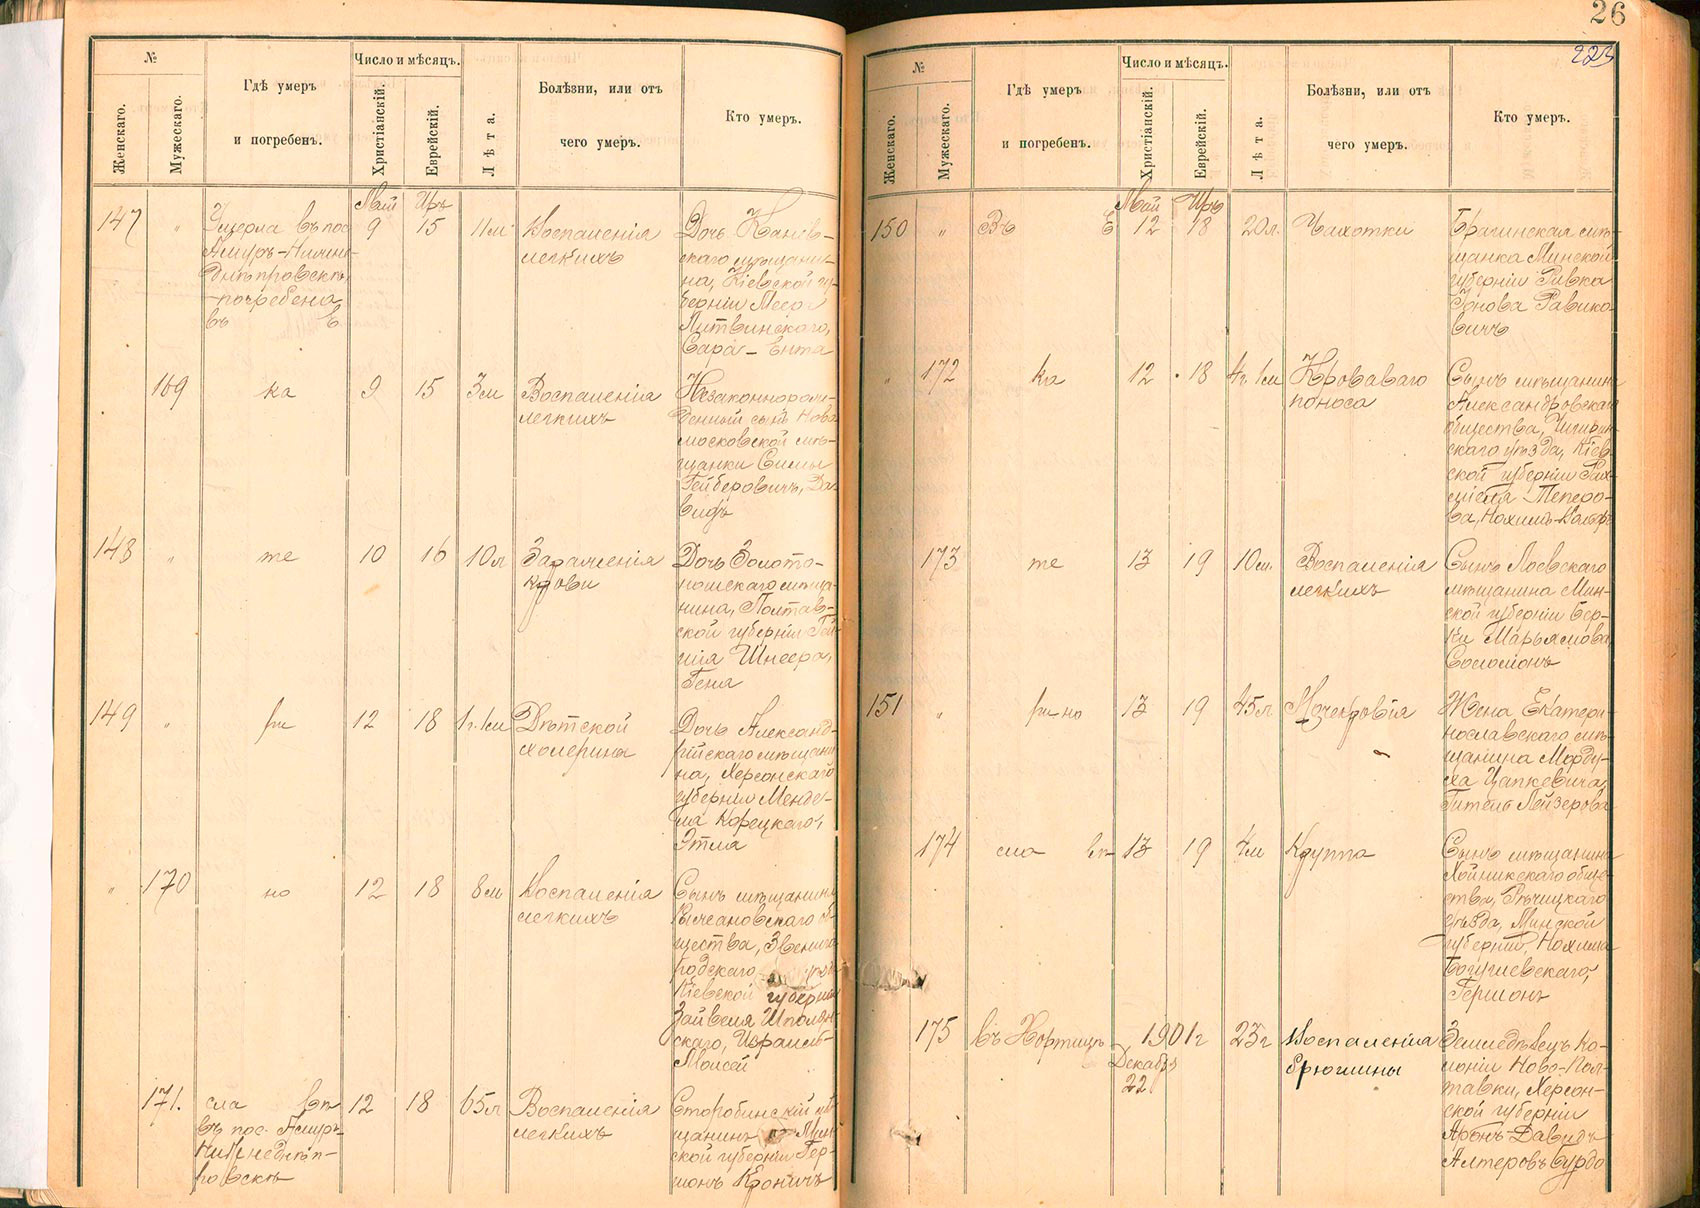 26
223
№
Женскаго.
Мужескаго.
Гдѣ умеръ
и погребенъ.
Число и мѣсяцъ.
Христіанскій.
Еврейскій.
Лѣта.
Болѣзни, или отъ
чего умеръ.
Кто умеръ.
Май Иръ
147 " 9 15 11м
Умерла въ пос
Амуръ-Нижне-
Днѣпровскѣ,
погребена
въ Е
Воспаленія
легкихъ
Дочь Канев-
скаго мѣщани-
на, Кіевской гу-
берніи
Литвинскаго,
Сара-Ента
169 ка 9 15 3м
Воспаленія
легкихъ
Незаконнорож-
денный сынъ Ново
московской мѣ-
щанки Симы
Гейберовичъ, Да-
видъ
148 " те 10 16 10л
Зараженія
крови
Дочь Золото-
ношскаго мѣща-
нина, Полтав-
ской губерніи
Шнеера,
Геня
149 " ри 12 18 1г. 1м
Дѣтской
холерины
Дочь Александ-
рійскаго мѣщани
на, Херсонскаго
губерніи Менде-
ля Корецкаго,
Этля
" 170 но 12 18 8м
Воспаленія
легкихъ
Сынъ мѣщанина
об-
щества, Звениго
родскаго
Кіевской губерніи
Зайвеля Шполян-
скаго, Израиль-
Мойсей
171. сла вп 12 18 65л
въ пос. Амуръ-
Нижнеднѣп-
ровскѣ
Воспаленія
легкихъ
Старобинскій мѣ
щанинъ Мин-
ской губерніи Гер-
шонъ Кроничъ
№
Женскаго.
Мужескаго.
Гдѣ умеръ
и погребенъ.
Число и мѣсяцъ.
Христіанскій.
Еврейскій.
Лѣта.
Болѣзни, или отъ
чего умеръ.
Кто умеръ.
Май Иръ
150 " Въ Е 12 18 20л.
Чахотки
Брагинская мѣ-
щанка Минской
губерніи Ривка
Равико-
вичъ
" 172 ка 12 18 4г. 1м
Кроваваго
поноса
Сынъ мѣщанина
Александровскаго
общества, Чигирин-
скаго уѣзда, Кіев
ской губерніи
Теперо-
ва, Нохимъ-Вольфъ
173 те 13 19 10м.
Воспаленія
легкихъ
Сынъ Лоевскаго
мѣщанина Мин-
ской губерніи Бер-
ки Марьямова
Соломонъ
151 " ри но 13 19 45л
Мочекровія
Жена Екатери-
нославскаго мѣ-
щанина Морду-
ха Цапкевича,
Гитля Лейзерова
174 сла вп 13 19 4м
Круппа
Сынъ мѣщанина
Хойникскаго обще-
ства, Рѣчицкаго
уѣзда, Минской
губерніи, Нохима
Богушевскаго,
Гершонъ
175 въ Хортицѣ 1901г 23г
Декабрь
22
Воспаленія
брюшины
Земледѣлецъ Ко-
лоніи Ново-Пол-
тавки, Херсон-
ской губерніи
Аронъ-Давидъ
Алтеровъ Бурдо